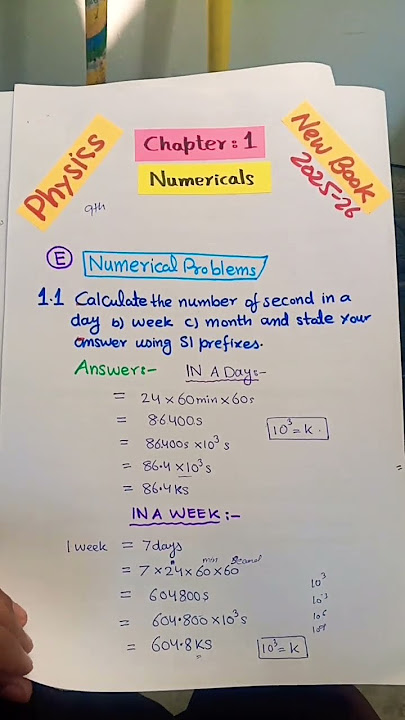 Physics
Chapter: 1
Numericals
New Book
2025-26
9th
E Numerical Problems
1.1 Calculate the number of second in a
day b) week c) month and state your
answer using SI prefixes.
Answer:- IN A Day:-
= 24 × 60min × 60s
= 86400s
10³ = k.
= 86400s ×10³ s
= 86.4 ×10³ s
= 86.4 ks
IN A WEEK :-
1 week = 7days
min Second
= 7 × 24 × 60 × 60
= 604800s
= 604.800 ×10³ s
= 604.8 KS
10³ = k
10³
10⁶